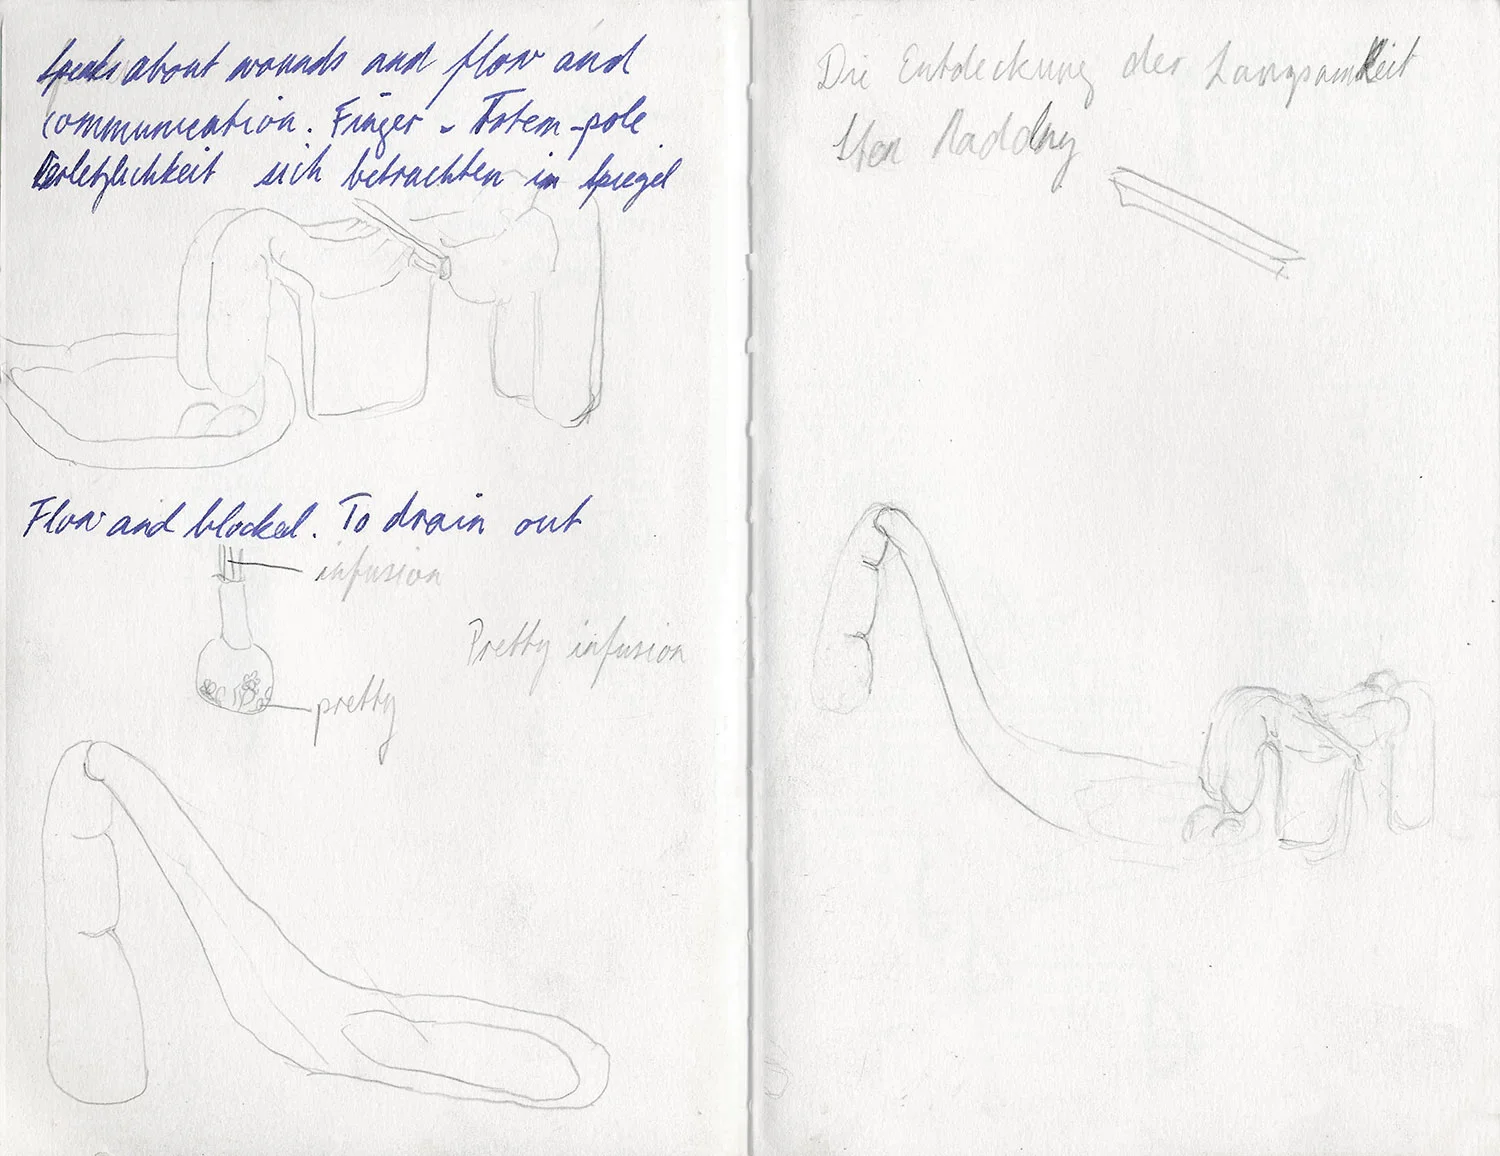 Speaks about wounds and flow and
communication. Finger - Totem-pole
Verletzlichkeit sich betrachten im Spiegel
Flow and blocked. To drain out
infusion
Pretty infusion
pretty
Die Entdeckung der Langsamkeit
Sten Nadolny